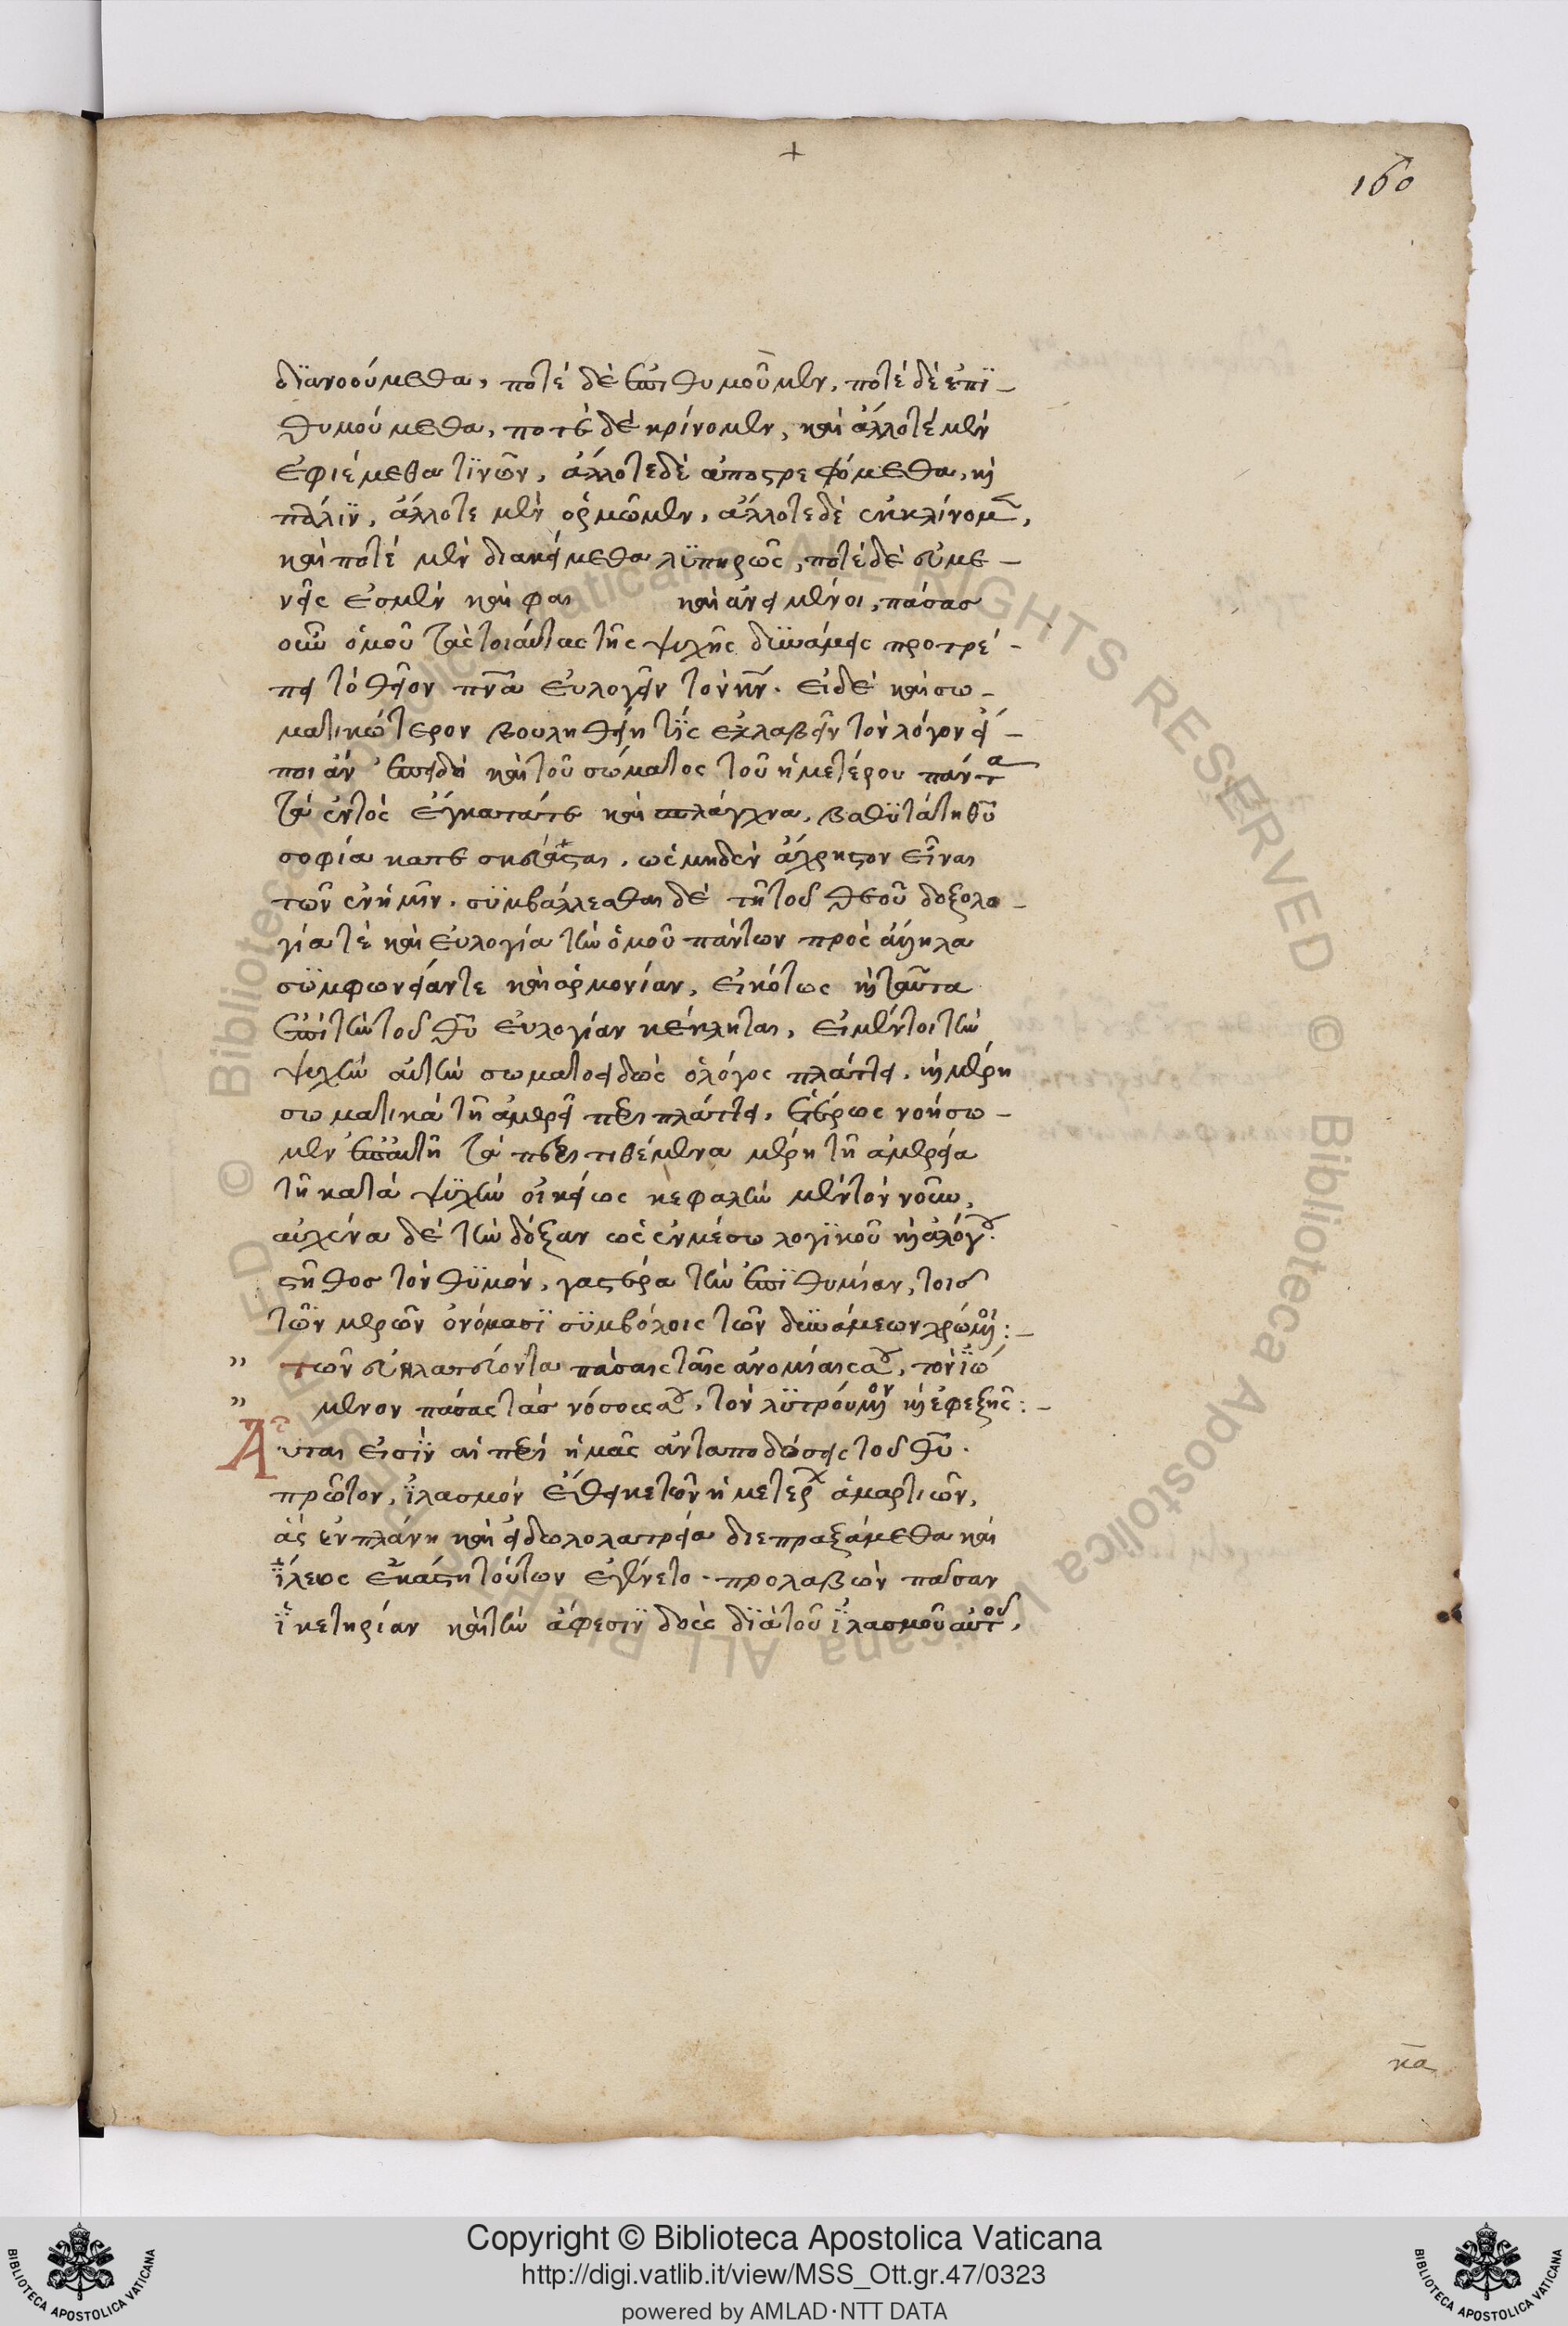 +
160
διανοούμεθα, ποτὲ δὲ ἐπιθυμοῦμεν, ποτὲ δὲ ἐπϊ-
θυμούμεθα, ποτὲ δὲ κρίνομεν, καὶ ἄλλοτε μὲν
ἐφιέμεθα τϊνῶν, ἄλλοτε δὲ ἀποστρεφόμεθα, κ(αὶ)
πάλϊν, ἄλλοτε μὲν ὁρμῶμεν, ἄλλοτε δὲ ἐκκλίνομ(εν),
καὶ ποτὲ μὲν διακείμεθα λϋπηρῶς, ποτὲ δὲ εὐμε-
νεῖς ἐσμὲν καὶ φαι καὶ ἀνειμένοι, πάσας
οὖν ὁμοῦ τὰς τοιαύτας τῆς ψυχῆς δϋνάμεις προτρέ-
πει τὸ θεῖον πν(εῦμ)α εὐλογεῖν τὸν κ(ύριο)ν. εἰ δὲ καὶ σω-
ματικώτερον βουληθείη τῒς ἐκλαβεῖν τὸν λόγον εἴ-
ποι ἂν ἐπειδὴ καὶ τοῦ σώματος τοῦ ἡμετέρου πάντα
τὰ ἐντὸς ἔγκατά τε καὶ σπλάγχνα, βαθϋτάτη θ(εο)ῦ
σοφία κατεσκεύασται, ὡς μηδὲν ἄχρηστον εἶναι
τῶν ἐν ἡμῖν. σϋμβάλλεσθαι δὲ τῆ τοῦ θεοῦ δοξολο-
γία τὲ καὶ εὐλογία τὴν ὁμοῦ πάντων πρὸς ἄλληλα
σϋμφωνείαν τε καὶ ἁρμονίαν, εἰκότως κ(αὶ) ταῦτα
ἐπὶ τὴν τοῦ θ(εο)ῦ εὐλογίαν κέκληται, εἰ μέν τοι τὴν
ψυχὴν αὐτὴν σωματοειδῶς ὁ λόγος πλάττει, κ(αὶ) μέρη
σωματικὰ τῆ ἀμερεῖ περιπλάττει, ἑτέρως νοήσω-
μεν ἐπ' αὐτῆ τὰ περιτιθέμενα μέρη τῆ ἀμερεία
τῆ κατὰ ψϋχὴν οἰκείως κεφαλὴν μὲν τὸν νοῦν,
αὐχένα δὲ τὴν δόξαν ὡς ἐν μέσω λογϊκοῦ κ(αὶ) ἀλόγου.
στῆθος τὸν θϋμὸν, γαστέρα τὴν ἐπϊθυμίαν, τοῖς
τῶν μερῶν ὀνόμασϊ σϋμβόλοις τῶν δϋνάμεων χρώμ(ενο)ι:-
" τὸν εὐϊλατεύοντα πάσαις ταῖς ἀνομίαις σου, τὸν ϊώ
" μενον πάσας τὰς νόσους σου, τὸν λϋτρούμενον κ(αὶ) ἐφεξῆς:-
Αὗται εἰσϊν αἱ περὶ ἡμᾶς ἀνταποδώσεις τοῦ θ(εο)ῦ.
πρῶτον, ϊλασμὸν ἔθηκε τῶν ἡμετέρων ἁμαρτιῶν,
ἃς ἐν πλάνη καὶ εἰδωλολατρεία διεπραξάμεθα καὶ
ϊλεως ἑκάστη τούτων ἐγένετο. προλαβὼν πᾶσαν
ϊκετηρίαν καὶ τὴν ἄφεσϊν δοὺς δϊὰ τοῦ ϊλασμοῦ αὐτοῦ,
κα
Copyright © Biblioteca Apostolica Vaticana
http://digi.vatlib.it/view/MSS_Ott.gr.47/0323
powered by AMLAD·NTT DATA
BIBLIOTECA APOSTOLICA VATICANA
BIBLIOTECA APOSTOLICA VATICANA